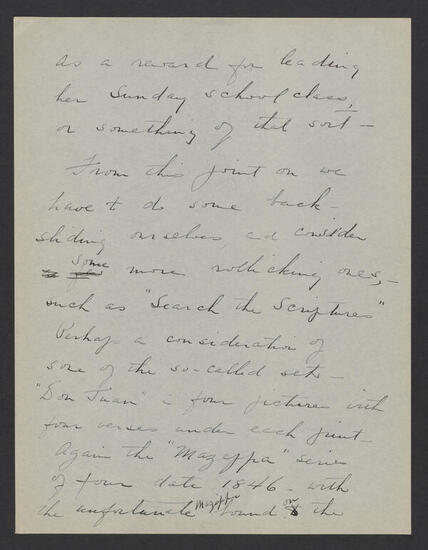 as a reward for leading
her Sunday school class,
or something of that sort —
From this point on we
have to do some back-
sliding ourselves, and consider
some more rollicking ones, —
such as "Search the Scriptures"
Perhaps a consideration of
some of the so-called sets —
"Don Juan" in four pictures with
four verses under each print —
Again the "Mazeppa" series
of four date 1846 — with
the unfortunate Mazeppa bound on the